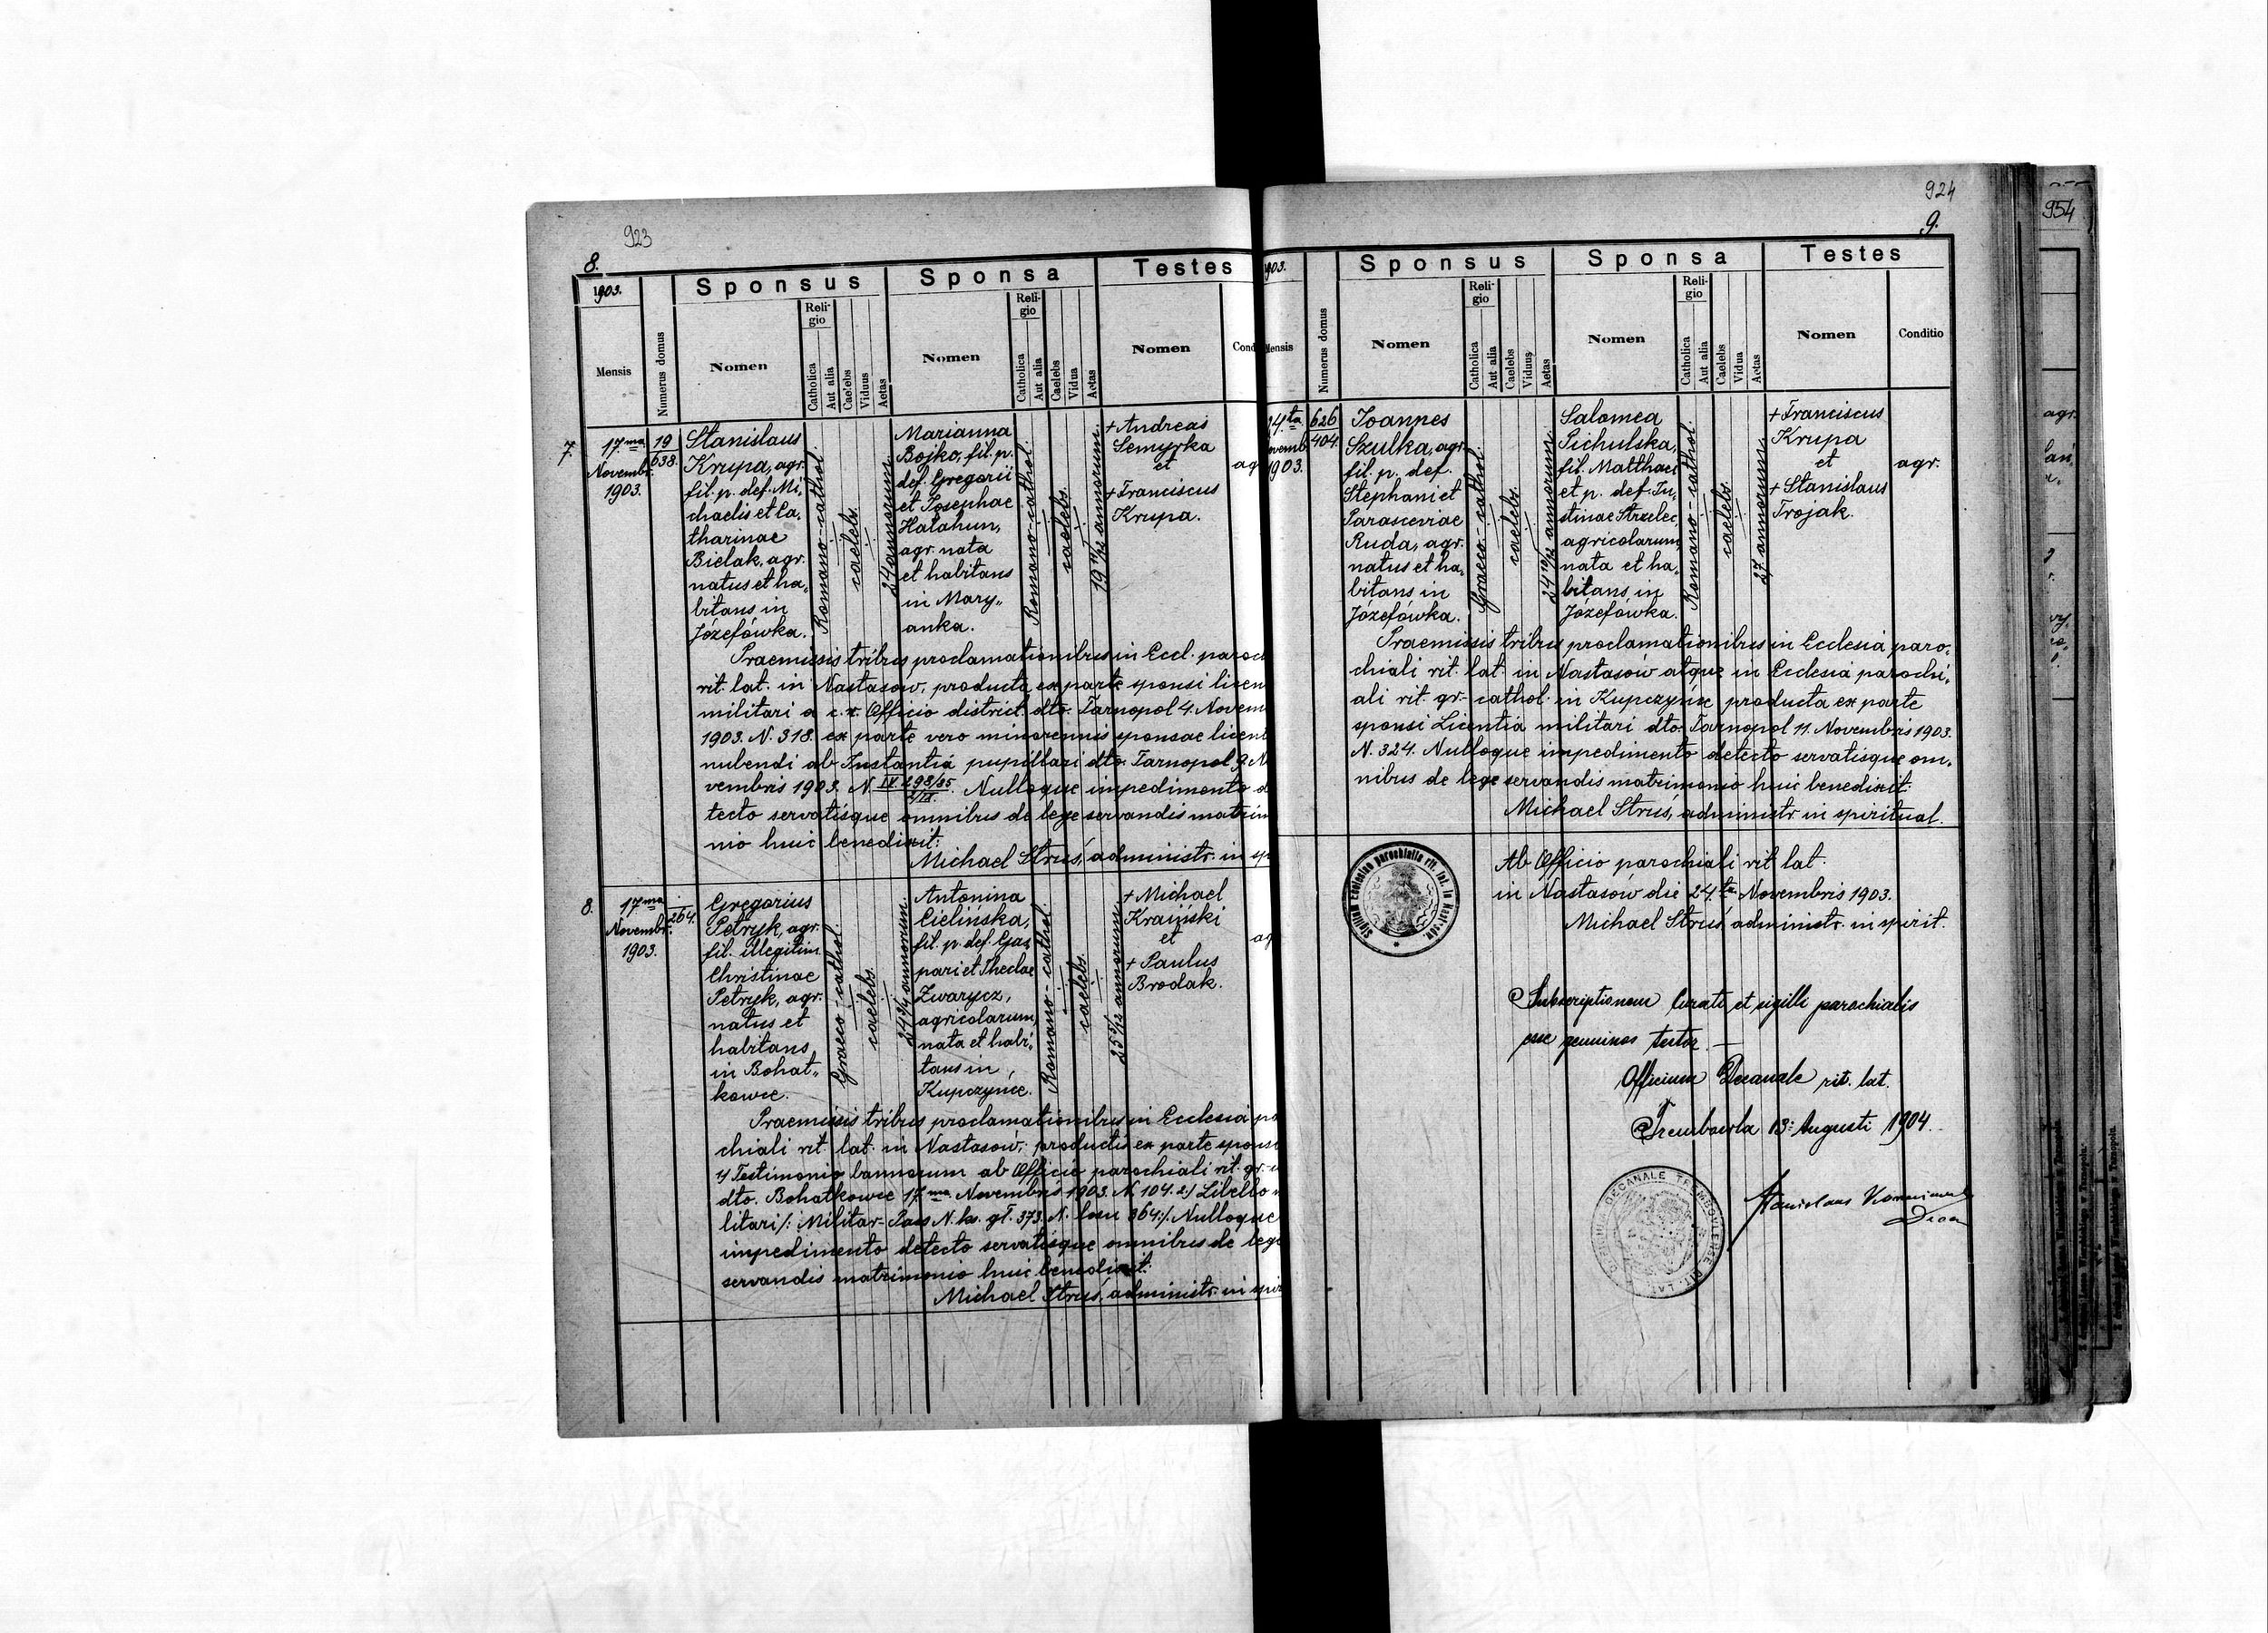 923
8.
1903.
Sponsus
Sponsa
Testes
Mensis
Numerus domus
Nomen
Reli-
gio
Catholica
Aut alia
Caelebs
Viduus
Aetas
Nomen
Reli-
gio
Catholica
Aut alia
Caelebs
Vidua
Aetas
Nomen
Cond
7.
17ma
Novembr.
1903.
19
638.
Stanislaus
Krupa, agr.
fil. p. def. Mi„
chaelis et Ca„
tharinae
Bielak, agr.
natus et ha„
bitans in
Józefówka.
Romano-cathol.
caelebs.
24 annorum.
Marianna
Bojko, fil. p.
def. Gregorii
et Josephae
Hałahun,
agr. nata
et habitans
in Mary„
anka.
Romano-cathol.
caelebs.
annorum.
+ Andreas
Semyrka
et
+ Franciscus
Krupa.
ag
Praemissis tribus proclamationibus in Eccl. paroch
rit. lat. in Nastasów, producta ex parte sponsi licen
militari a c. r. Officio district. dto. Tarnopol 4. Novem
1903. N. 318. ex parte vero minorennis sponsae licent
nubendi ab Instantiá pupillari dto. Tarnopol 9 N
vembris 1903. N. Nulloque impedimento d
tecto servatisque omnibus de lege servandis matrim
nio huic benedixit:
Michael Struś, administr. in sp
8.
17ma
Novembr.
1903.
264.
Gregorius
Petryk, agr.
fil. illegitim.
Christinae
Petryk, agr.
natus et
habitans
in Bohat„
kowce.
Graeco-cathol.
caelebs.
annorum.
Antonina
Cielińska,
fil. p. def. Gas„
pari et Theclae
Zwarycz,
agricolarum,
nata et habi„
tans in
Kupczyńce.
Romano-cathol.
caelebs.
annorum.
+ Michael
Kraiński
et
+ Paulus
Brodak.
ag
Praemissis tribus proclamationibus in Ecclesiá pa
chiali rit. lat. in Nastasów; productis ex parte sponsi
1/ Testimonio bannorum ab Officio parochiali rit. gr.
dto. Bohatkowce 17ma Novembris 1903. N. 104. 2:/ Libello
litari /: Militar-Pass N. ks. gł. 373. N. losu 864:/. Nulloque
impedimento detecto servatisque omnibus de lege
servandis matrimonio huic benedixit:
Michael Struś, administr. in spir
924
9.
1903.
Sponsus
Sponsa
Testes
Mensis
Numerus domus
Nomen
Reli-
gio
Catholica
Aut alia
Caelebs
Viduus
Aetas
Nomen
Reli-
gio
Catholica
Aut alia
Caelebs
Vidua
Aetas
Nomen
Conditio
24ta
ovemb.
1903.
626
404.
Joannes
Szulka, agr.
fil. p. def.
Stephani et
Parasceviae
Ruda, agr.
natus et ha„
bitans in
Józefówka.
Graeco-cathol.
caelebs.
annorum.
Salomea
Pichulska,
fil. Matthaei
et p. def. Ju„
stinae Strzelec
agricolarum,
nata et ha„
bitans in
Józefówka.
Romano-cathol.
caelebs.
27 annorum.
+ Franciscus
Krupa
et
+ Stanislaus
Trojak.
agr.
Praemissis tribus proclamationibus in Ecclesiá paro„
chiali rit. lat. in Nastasów atque in Ecclesiá parochi„
ali rit. gr.-cathol. in Kupczyńce producta ex parte
sponsi Licentiá militari dto. Tarnopol 11. Novembris 1903.
N. 324. Nulloque impedimento detecto servatisque om„
nibus de lege servandis matrimonio huic benedixit:
Michael Struś, administr. in spiritual.
Sigillum Ecclesiae parochialis rit. lat. in Nastasów.
Ab Officio parochiali rit. lat.
in Nastasów die 24.ta Novembris 1903.
Michael Struś administr. in spirit.
Subscriptionem Curati et sigilli parochialis
esse genuinos testor. —
Officium Decanale rit. lat.
Trembowla 13: Augusti 1904.
DECANALE TREMBOVLENSE RIT. LAT.
Stanislaus
954
agr.